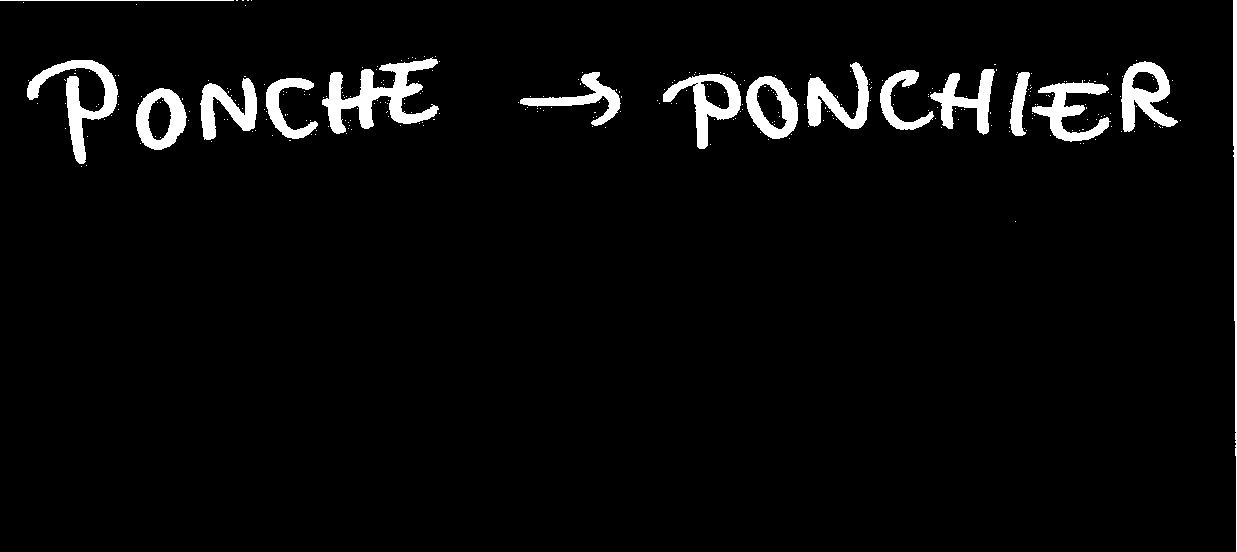 PONCHE → PONCHIER